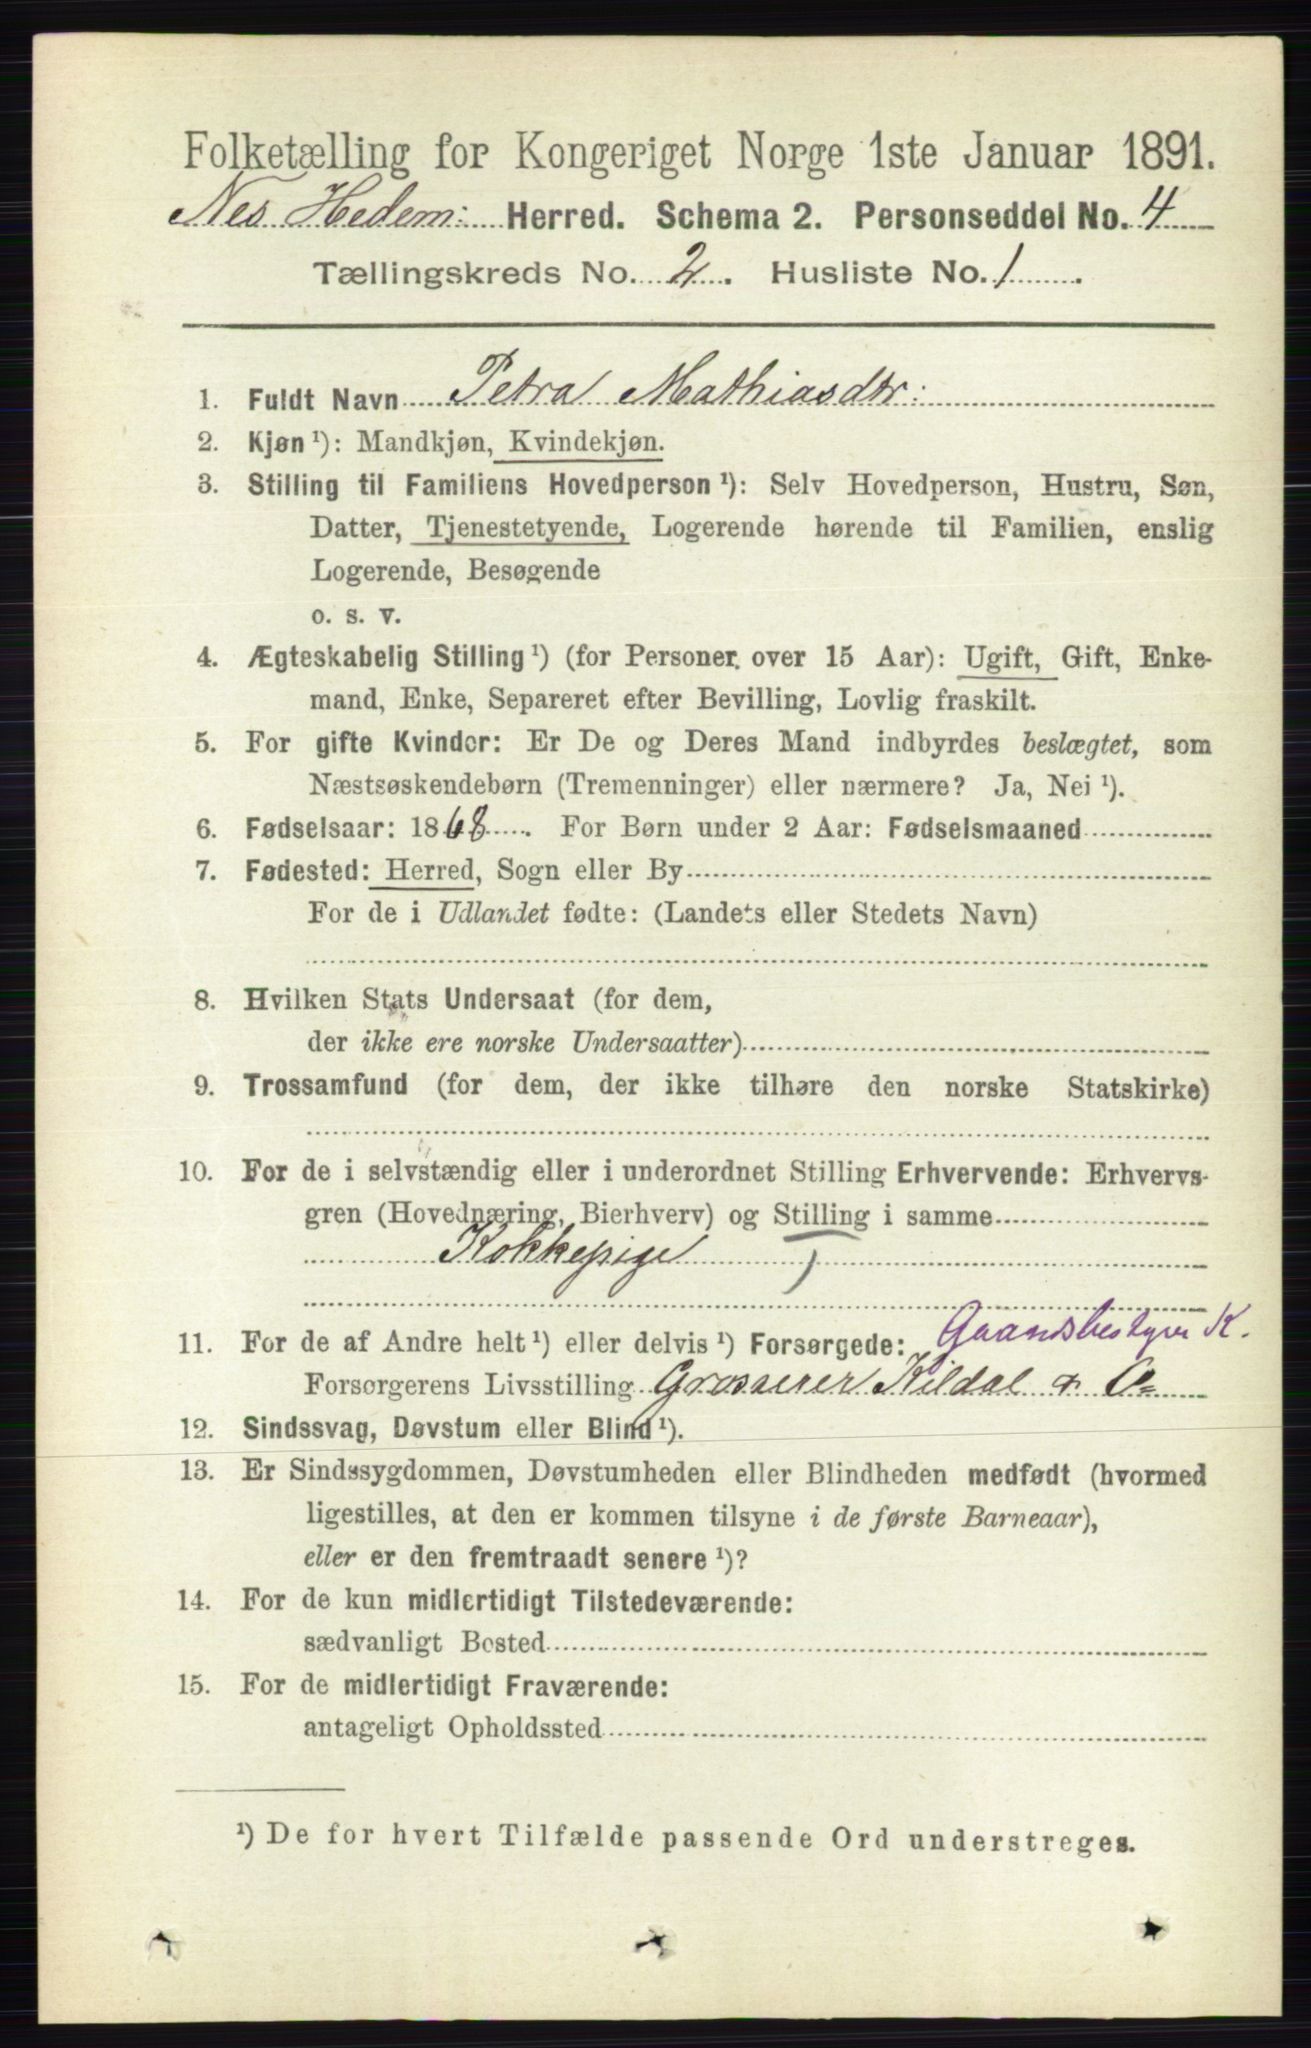 Folketælling for Kongeriget Norge 1ste Januar 1891.
Nes Hedem: Herred. Schema 2. Personseddel No. 4
Tællingskreds No. 2. Husliste No. 1.
1. Fuldt Navn Petra Mathiasdtr:
2. Kjøn ¹): Mandkjøn, Kvindekjøn.
3. Stilling til Familiens Hovedperson ¹): Selv Hovedperson, Hustru, Søn,
Datter, Tjenestetyende, Logerende hørende til Familien, enslig
Logerende, Besøgende
o. s. v.
4. Ægteskabelig Stilling ¹) (for Personer over 15 Aar): Ugift, Gift, Enke-
mand, Enke, Separeret efter Bevilling, Lovlig fraskilt.
5. For gifte Kvinder: Er De og Deres Mand indbyrdes beslægtet, som
Næstsøskendebørn (Tremenninger) eller nærmere? Ja, Nei ¹).
6. Fødselsaar: 1868. For Børn under 2 Aar: Fødselsmaaned
7. Fødested: Herred, Sogn eller By
For de i Udlandet fødte: (Landets eller Stedets Navn)
8. Hvilken Stats Undersaat (for dem,
der ikke ere norske Undersaatter)
9. Trossamfund (for dem, der ikke tilhøre den norske Statskirke)
10. For de i selvstændig eller i underordnet Stilling Erhvervende: Erhvervs-
gren (Hovednæring, Bierhverv) og Stilling i samme
Kokkepige
Gaardsbestyrer K.
11. For de af Andre helt ¹) eller delvis ¹) Forsørgede:
Forsørgerens Livsstilling Grosserer Kildal &
12. Sindssvag, Døvstum eller Blind ¹).
13. Er Sindssygdommen, Døvstumheden eller Blindheden medfødt (hvormed
ligestilles, at den er kommen tilsyne i de første Barneaar),
eller er den fremtraadt senere ¹)?
14. For de kun midlertidigt Tilstedeværende:
sædvanligt Bosted
15. For de midlertidigt Fraværende:
antageligt Opholdssted
¹) De for hvert Tilfælde passende Ord understreges.